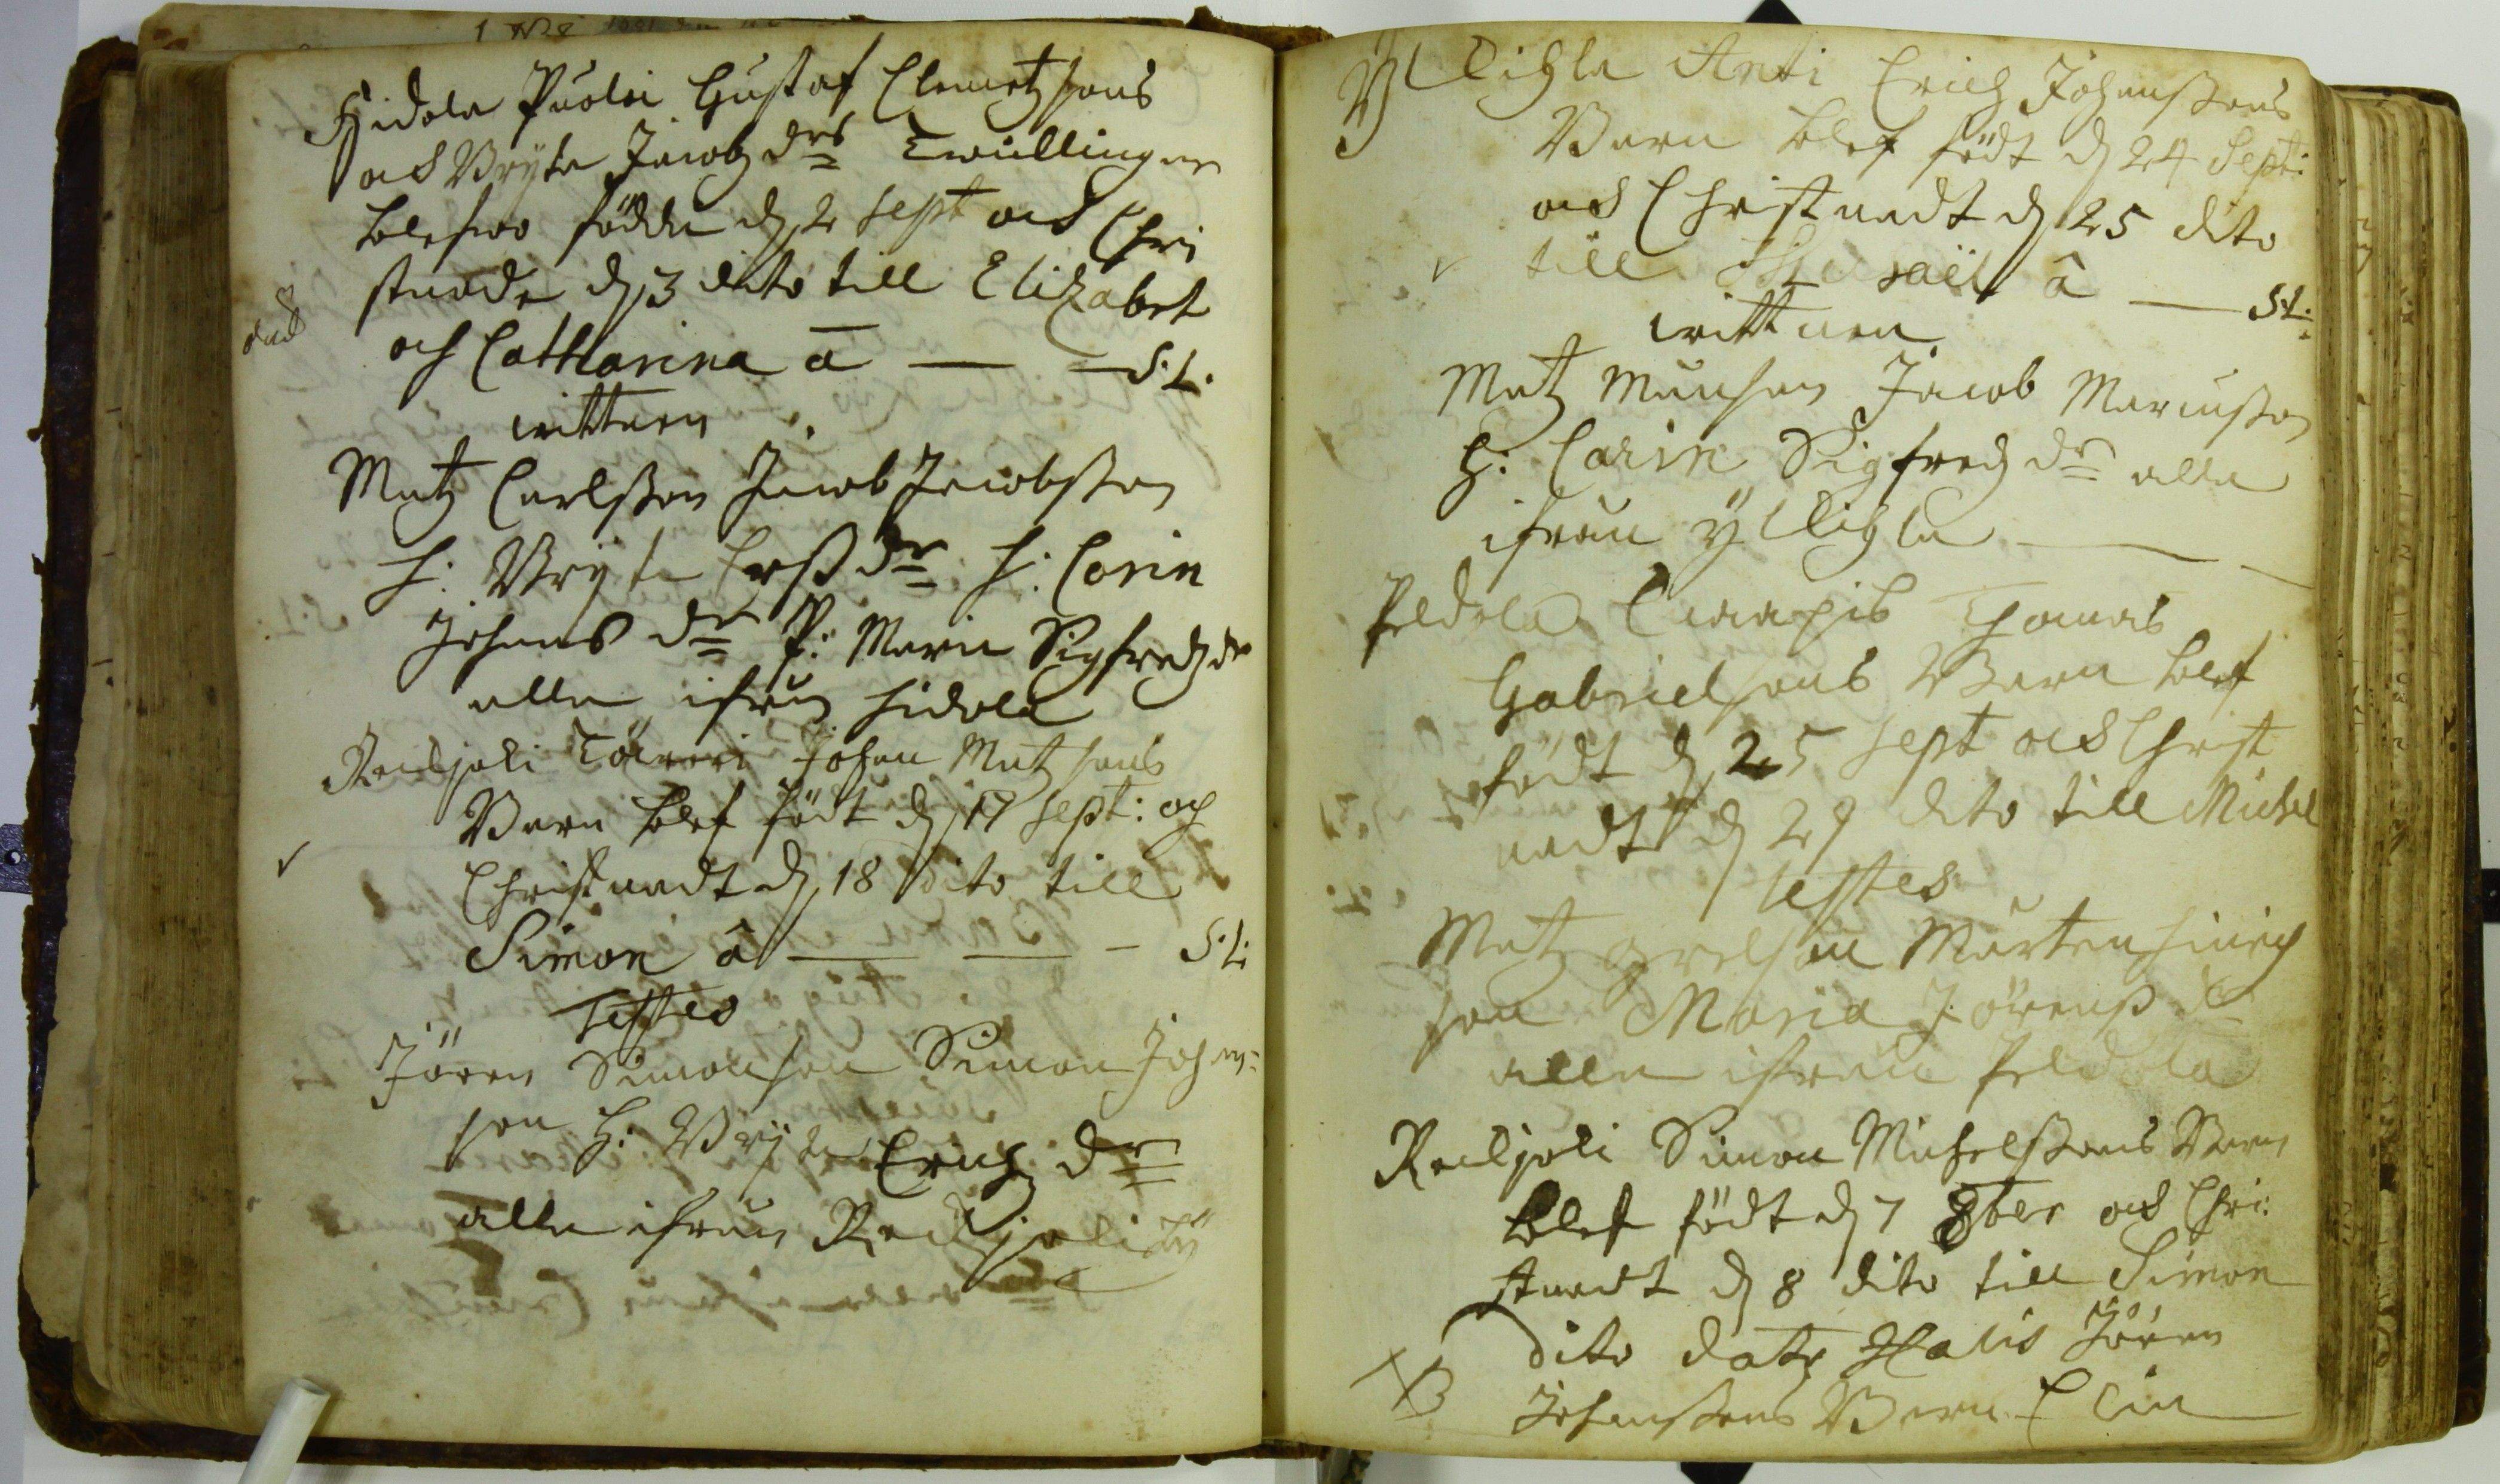 Hidola Puoloi Gustaf Clemetzsons
och Bryta Jacobz drs Twillingar
blefwo födde dn 2 sept och Chri
stnade dn 3 dito till Elizabet
och Catharina a — — S. L.
wittnen
Matz Carlsson Jacob Jacobsson
h: Bryta Larssdr h: Carin
Johans dr P: Maria Sigfredz dr
alla ifrån Hidola
Reckjoki Johan Matzsons
Barn blef födt dn 17 sept: och
Christnadt dn 18 dito till
Simon â — — – S. L.
Testes
Jören Simonson Simon Johan:
son H: Bryta Erichz dr
alla ifrån Reckjoki
Ylligla Anti Erich Johanssons
Barn blef födt dn 24 Sept:
och Christnadt dn 25 dito
till â — S. L.
wittnen
Matz Munsson Jacob Marcusson
H: Carin Sigfredz dr alla
ifrån Ylligla —
Peldola Tomas
Gabrielsons Barn blef
födt dn 25 sept och Christ
nadt dn 29 dito till Michel
Testes
Matz Grelson Mårten Hinrich
son Maria Jörenss dr
alla ifrån Peldola
Reckjoki Simon Michelssons Barn
blef födt dn 7 8ber och Chri:
stnadt dn 8 dito till Simon
dito dato Jören
Johanssons Barn Elin